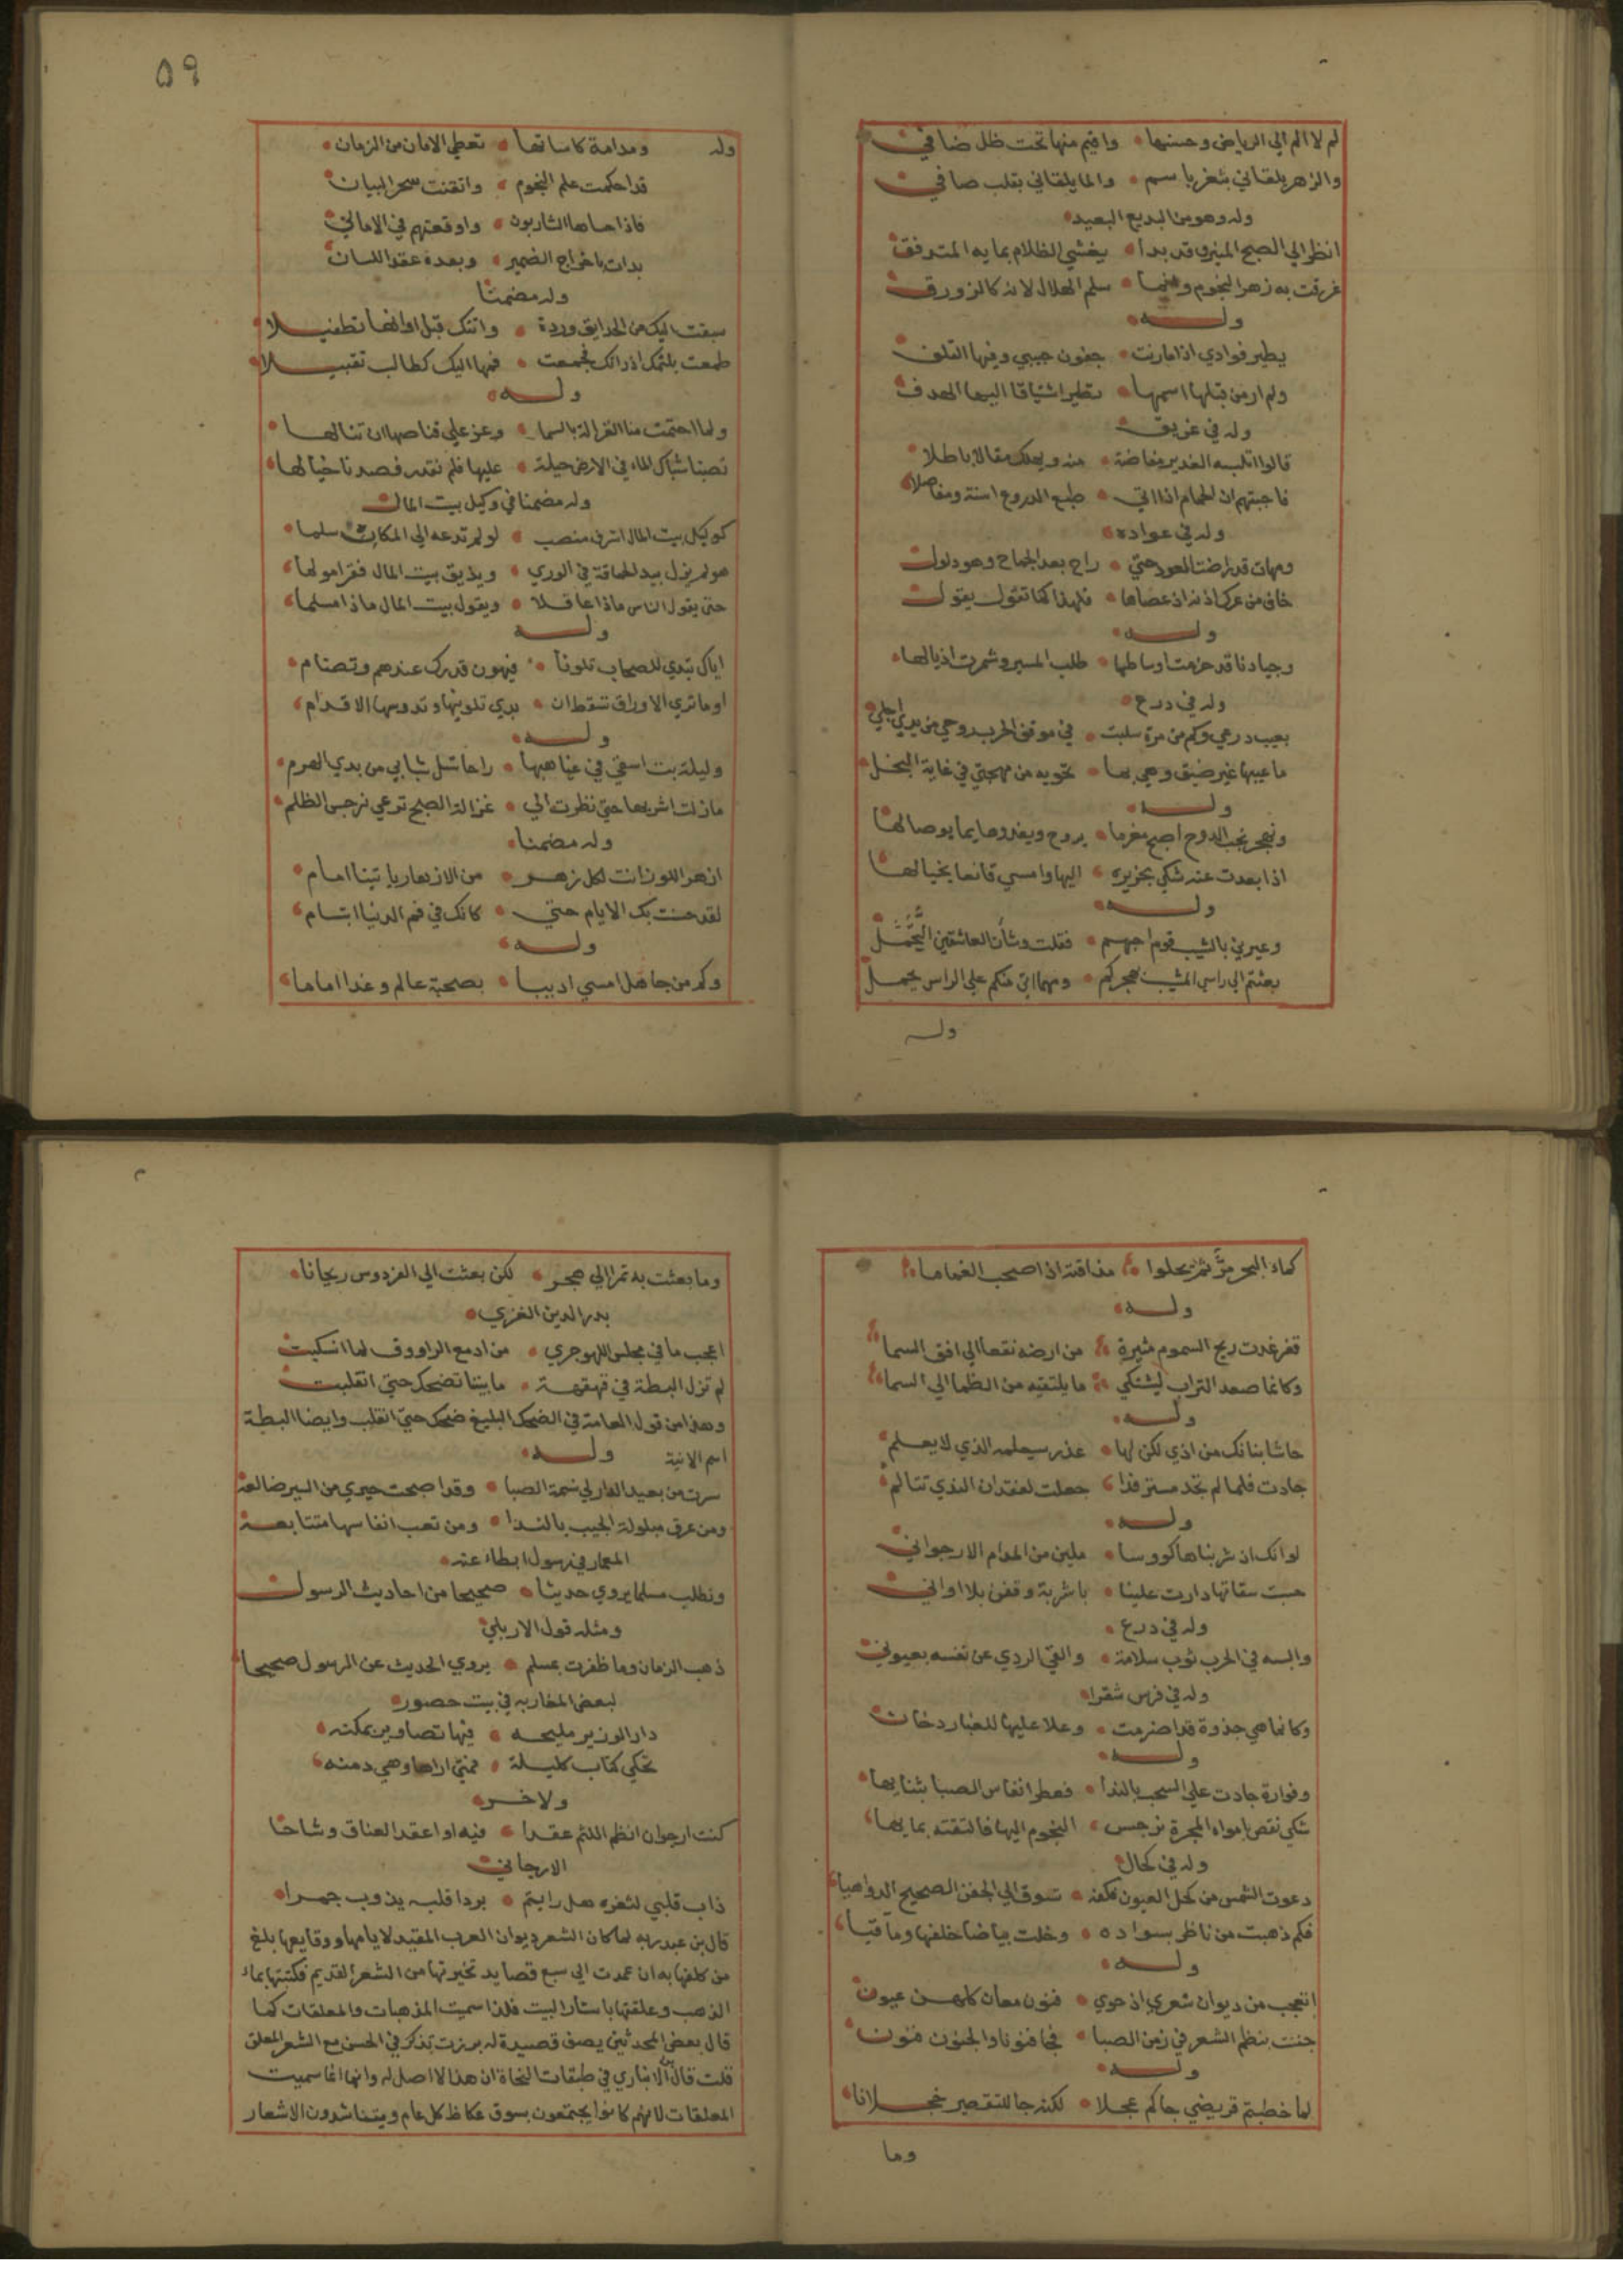 لم لا اهم الي الرياض وحسنها • واقيم منها تحت ظل ضافي
والزهر يلقاني بثغر باسم • والما يلقاني بقلب صافي
وله وهو من البديع البعيد
انظر الي الصبح المنير وقد بدا • يغشي الظلام بمايه المتدفق
غرقت به زهر النجوم وانما • سلم الهلال لانه كالزورق
وله
يطير فوادي اذا ما رنت • جفون حبيبي وفيها التلف
ولم ار من قبلها اسهما • تطير اشتياقا اليها الهدف
وله في غريق
قالوا اتلبسه الغدير مفاضة • منه ويهلك مقالا باطلا
فاجبتهم ان الحمام اذا اتي • طبع الدروع اسنة ومفاصلا
وله في عواده
ومهات قد راضت العود حتي • راح بعد الجماح وهو ذلول
خاف من عرك اذنه اذ عصاها • فلهذا كما تقول يقول
وله
وجيادنا قد حزمت اوساطها • طلب المسير وشمرت اذيالها
وله في درع
يعيب درعي وكم من مرة سلبت • في موقف الحرب روحي من يدي اجلي
ما عيبها غير ضيق وهي بها • تحويه من مهجتي في غاية البخل
وله
ونهر بحب الدوح اصبح مغرما • يروح ويغدو هايما بوصالها
اذا بعدت عنه شكي بخريره • اليها وامسي قانعا بخيالها
وله
وعيرني بالشيب قوم احبهم • فقلت وشان العاشقين التجمل
بعثتم الي راسي المشيب بهجركم • ومهما اتي منكم علي الراس يحمل
وله
٥٩
وله ومدامة كاساتها • تعطي الامان من الزمان
قد احكمت علم النجوم • واتقنت سحر البيان
فاذا حساها الشاربون • واوقعتهم في الاماني
بدات باخراج الضمير • وبعده عقد اللسان
وله مضمنا
سبقت اليك من الحدايق وردة • واتتك قبل اوانها تطفيلا
طمعت بلثمك اذ راتك فجمعت • فمها اليك كطالب تقبيلا
وله
ولما احتمت منا الغزالة بالسما • وعز علي قناصها ان تنالها
نصبنا شباك الماء في الارض حيلة • عليها فلم نقدر فصدنا خيالها
وله مضمنا في وكيل بيت المال
كوكيل بيت المال اشرف منصب • لو لم تدعه الي المكان سلما
هو لم يزل بيد الحماقة في الوري • ويذيق بيت المال فقرا مولها
حتي يقول الناس ماذا عاقلا • ويقول بيت المال ماذا مسلما
وله
اياك تبدي للصحاب تلونا • فيهون قدرك عندهم وتضام
او ما تري الاوراق تسقط ان • بدي تلوينها وتدوسها الاقدام
وله
وليلة بت اسقي في غياهبها • راحا تسل شبابي من يدي الهرم
ما زلت اشربها حتي نظرت الي • غزالة الصبح ترعي نرجس الظلم
وله مضمنا
ازهر اللوز انت لكل زهر • من الازهار ياتينا امام
لقد حسنت بك الايام حتي • كانك في فم الدنيا ابتسام
وله
وكم من جاهل امسي اديبا • بصحبة عالم وغدا اماما
كماء البحر مرّ ثم يحلوا • مذاقته اذا صحب الغماما
وله
قفر غدت ريح السموم مثيرة • من ارضه نقعا الي افق السما
وكانما صعد التراب ليشتكي • ما يلتقيه من الظما الي السما
وله
حاشا بنانك من اذي لكن لها • عذر سيعلمه الذي لا يعلم
جادت فلما لم تجد مسترفدا • جعلت لفقدان الندي تتالم
وله
لو انك اذ شربناها كووسا • ملين من المدام الارجواني
حسبت سقاتها دارت علينا • باشربة وقفن بلا اواني
وله في درع
والبسه في الحرب ثوب سلامة • والقي الردي عن نفسه بعيوني
وله في فرس شقرا
وكانما هي جذوة قد اضرمت • وعلا عليها للغبار دخان
وله
وفوارة جادت علي السحب بالندا • فعطر انفاس الصبا بثنايها
شكي نقص امواه المجرة نرجس • النجوم اليها فالتقته بمايها
وله في كحال
دعوت الشمس من كحل العيون فكفه • تسوق الي الجفن الصحيح الدواهيا
فكم ذهبت من ناظر بسواده • وخلت بياضا خلفها وماقيا
وله
اتعجب من ديوان شعري اذ حوي • فنون معان كلهن عيون
جننت بنظم الشعر في زمن الصبا • فجا فنونا والجنون فنون
وله
لما خطبتم قريضي جاكم عجلا • لكنه جا للتقصير خجلانا
وما
وما بعثت به تمرا الي هجر • لكن بعثت الي الفردوس ريحانا
بدر الدين الغزي
اعجب ما في مجلس اللهو جري • من ادمع الراووق لما انسكبت
لم تزل البطة في قهقهة • ما بيننا تضحك حتي انقلبت
وهذا من قول العامة في الضحك البليغ ضحك حتي انقلب وايضا البطة
اسم الانية وله
سرت من بعيد الدار لي نسمة الصبا • وقد اصبحت حيري من السير ضالعه
ومن عرق مبلولة الجيب بالندا • ومن تعب انفاسها متتابعه
المعمار في رسول ابطاء عنه
ونطلب مسلما يروي حديثا • صحيحا من احاديث الرسول
ومثله قول الاربلي
ذهب الزمان وما ظفرت بمسلم • يروي الحديث عن الرسول صحيحا
لبعض المغاربه في بيت حصور
دار الوزير مليحه • فيها تصاوير بمكنه
تحكي كتاب كليلة • فمتي اراها وهي دمنه
ولاخر
كنت ارجو ان انظم اللثم عقدا • فيه او اعقد العناق وشاحا
الارجاني
ذاب قلبي لثغره هل رايتم • بردا قلبه يذوب جمرا
قال بن عبد ربه لما كان الشعر ديوان العرب المقيد لايامها ووقايعها بلغ
من كلفها به ان عمدت الي سبع قصايد تخيرتها من الشعر القديم فكتبتها بماء
الذهب وعلقتها باستار البيت فلذا سميت المذهبات والمعلقات كما
قال بعض المحدثين يصف قصيدة له برزت تذكر في الحسن مع الشعر المعلق
قلت قال بن الانباري في طبقات النحاة ان هذا لا اصل له وانها انما سميت
المعلقات لانهم كانوا يجتمعون بسوق عكاظ كل عام ويتناشدون الاشعار